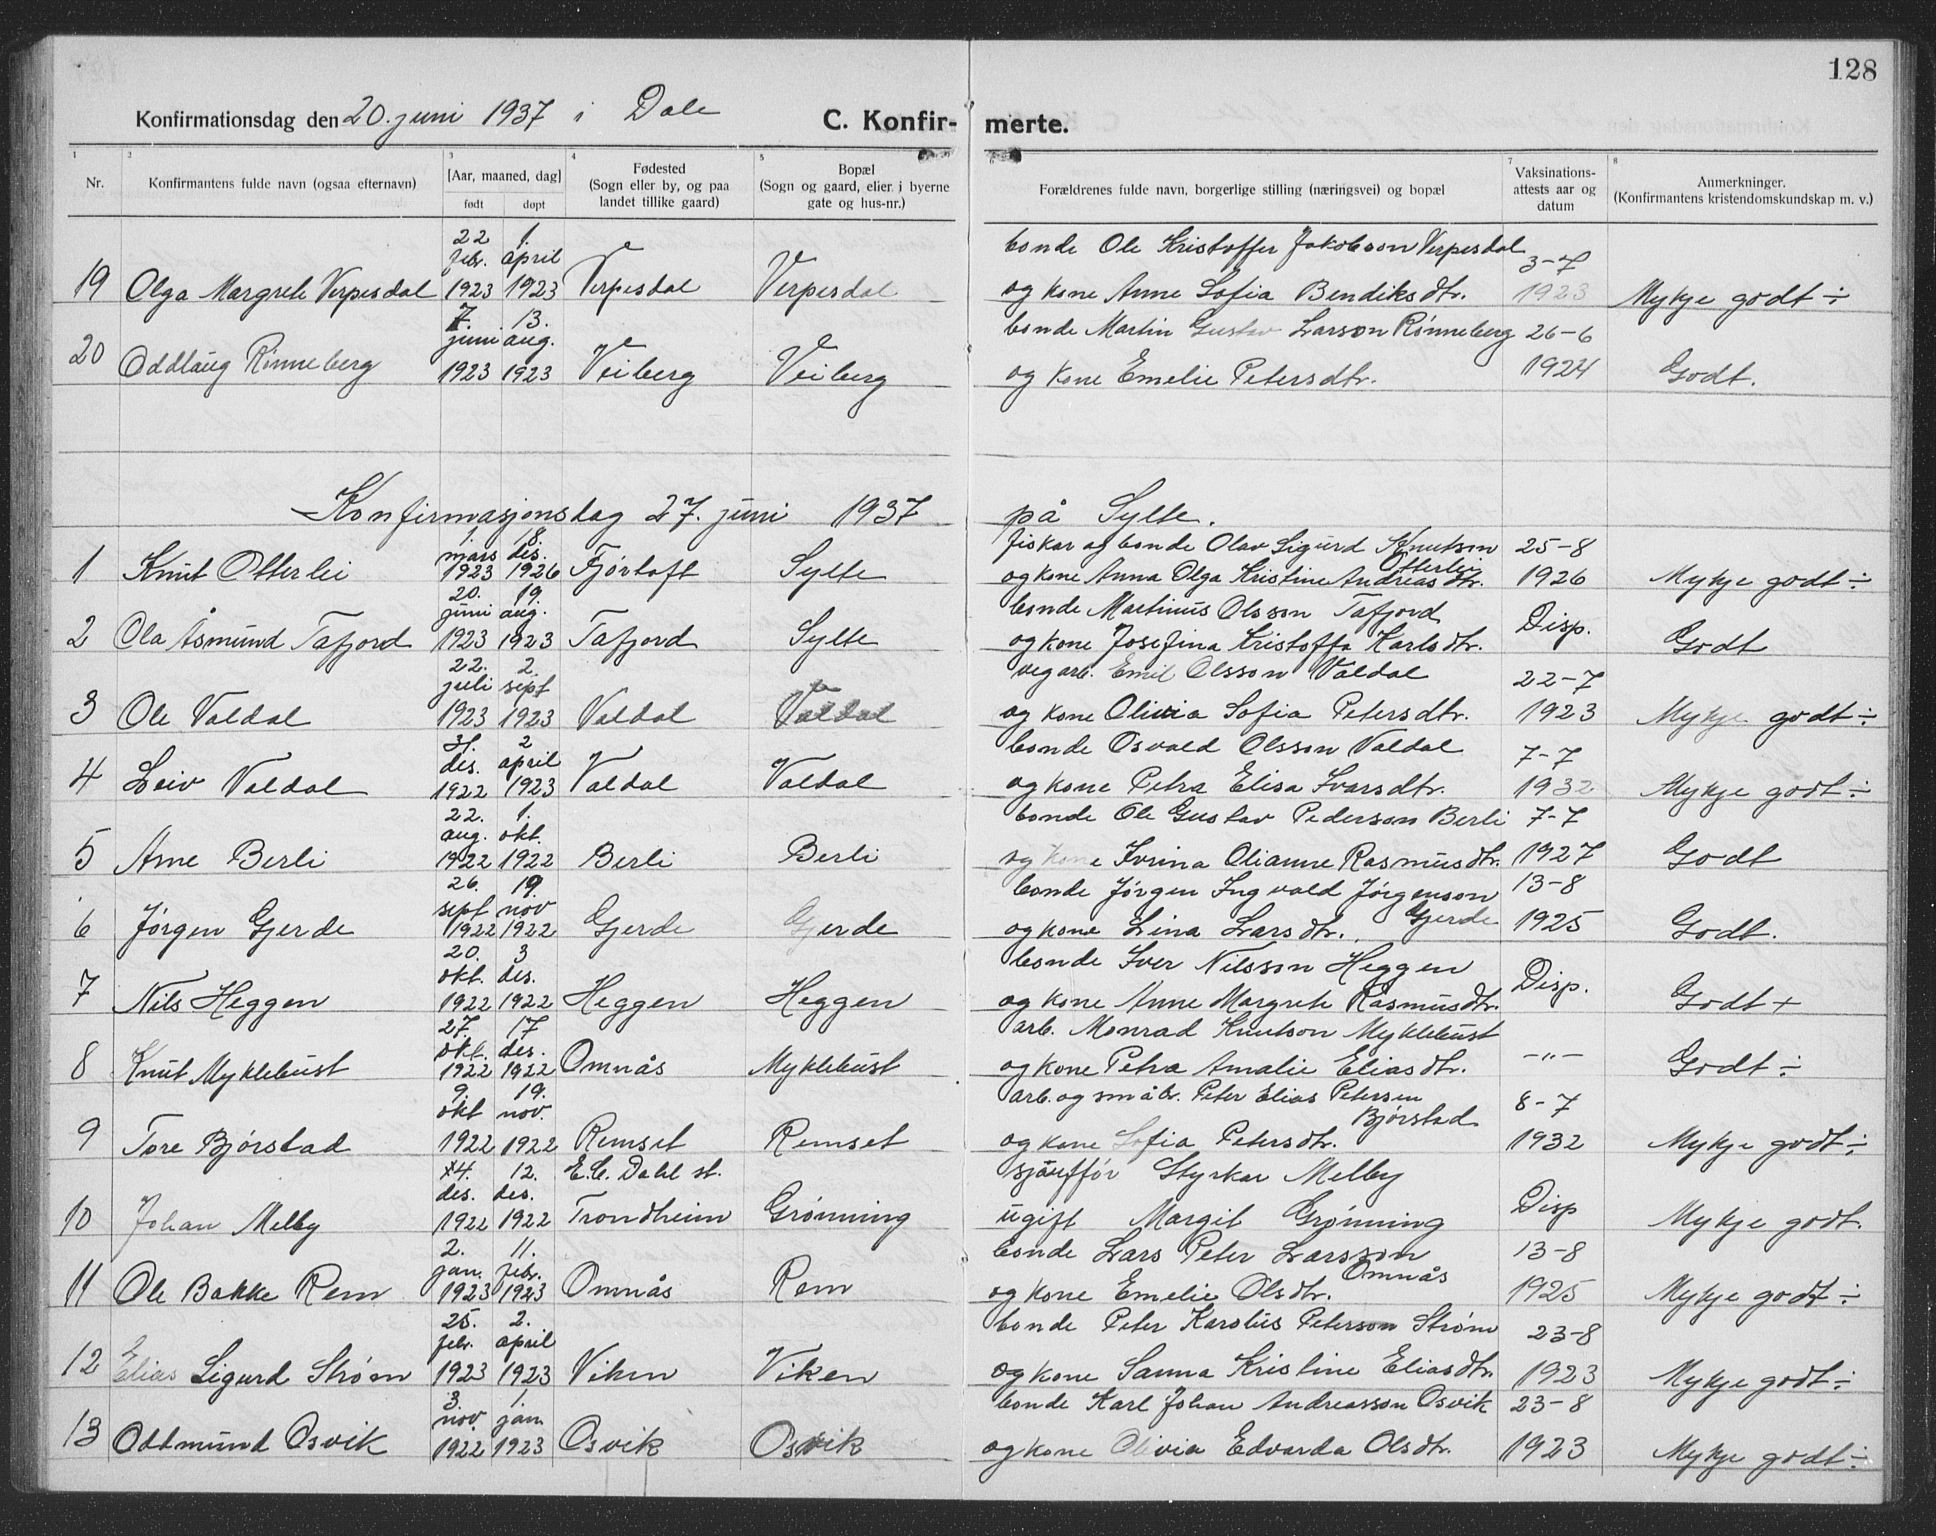 128
Konfirmationsdag den 20. juni 1937 i Dale C. Konfir- merte.
1 2 3 4 5 6 7 8
Nr. Konfirmantens fulde navn (ogsaa efternavn) [Aar, maaned, dag] født døpt Fødested (Sogn eller by, og paa landet tillike gaard) Bopæl (Sogn og gaard, eller i byerne gate og hus-nr.) Forældrenes fulde navn, borgerlige stilling (næringsvei) og bopæl Vaksinations-attests aar og datum Anmerkninger. (Konfirmantens kristendomskundskap m. v.)
22 febr. 1. april bonde Ole Kristoffer Jakobson Verpesdal 3-7
19 Olga Margrete Verpesdal 1923 1923 Verpesdal Verpesdal og kone Anne Sofia Bendiksdtr. 1923 Mykje godt ÷
7. juni 13. aug. bonde Martin Gustav Larson Rønneberg 26-6
20 Oddlaug Rønneberg 1923 1923 Veiberg Veiberg og kone Emelie Petersdtr. 1924 Godt.
Konfirmasjonsdag 27. juni 1937 på Sylte.
1. mars 18. des. fiskar og bonde Olav Sigurd Knutson Otterlei 25-8
1 Knut Otterlei 1923 1926 Fjørtoft Sylte og kone Anna Olga Kristine Andreasdtr. 1926 Mykje godt ÷
20. juni 19. aug. bonde Martinus Olsson Tafjord
2 Ola Åsmund Tafjord 1923 1923 Tafjord Sylte og kone Josefina Kristoffa Karlsdtr. Disp. Godt
22. juli 2. sept vegarb. Emil Olsson Valdal 22-7
3 Ole Valdal 1923 1923 Valdal Valdal og kone Olivia Sofia Petersdtr. 1923 Mykje godt ÷
31. des. 2 april bonde Osvald Olsson Valdal 7-7
4 Leiv Valdal 1922 1923 Valdal Valdal og kone Petra Elisa Ivarsdtr. 1932 Mykje godt ÷
22. aug. 1. okt. bonde Ole Gustav Pederson Berli 7-7
5 Arne Berli 1922 1922 Berli Berli og kone Ivrina Olianne Rasmusdtr. 1927 Godt
26. sept 19. nov bonde Jørgen Ingvald Jørgenson Gjerde 13-8
6 Jørgen Gjerde 1922 1922 Gjerde Gjerde og kone Lina Larsdtr. 1925 Godt.
20. okt. 3 des. bonde Iver Nilsson Heggen
7 Nils Heggen 1922 1922 Heggen Heggen og kone Anne Margrete Rasmusdtr. Disp. Godt +
27. okt. 17 des. arb. Monrad Knutson Myklebust
8 Knut Myklebust 1922 1922 Omnås Myklebust og kone Petra Amalie Eliasdtr. -"- Godt ÷
9. okt 19. nov. arb. og småbr. Peter Elias Petersen Bjørstad 8-7
9 Tore Bjørstad 1922 1922 Remset Remset og kone Sofia Petersdtr. 1932 Mykje godt ÷
4. des. 12. des. E.C. Dahl st. sjåuffør Styrkar Melby
10 Johan Melby 1922 1922 Trondheim Grønning ugift Margit Grønning Disp Mykje godt.
2. jan. 11. febr. bonde Lars Peter Larsson Omnås 13-8
11 Ole Bakke Rem 1923 1923 Omnås Rem og kone Emelie Olsdtr. 1925 Mykje godt ÷
25. febr. 2. april bonde Peter Karolus Peterson Strøm 23-8
12 Elias Sigurd Strøm 1923 1923 Viken Viken og kone Sanna Kristine Eliasdtr. 1923 Mykje godt ÷
3. nov 1. jan. bonde Karl Johan Andreasson Osvik 23-8
13 Oddmund Osvik 1922 1923 Osvik Osvik og kone Olivia Edvarda Olsdtr. 1923 Mykje godt ÷